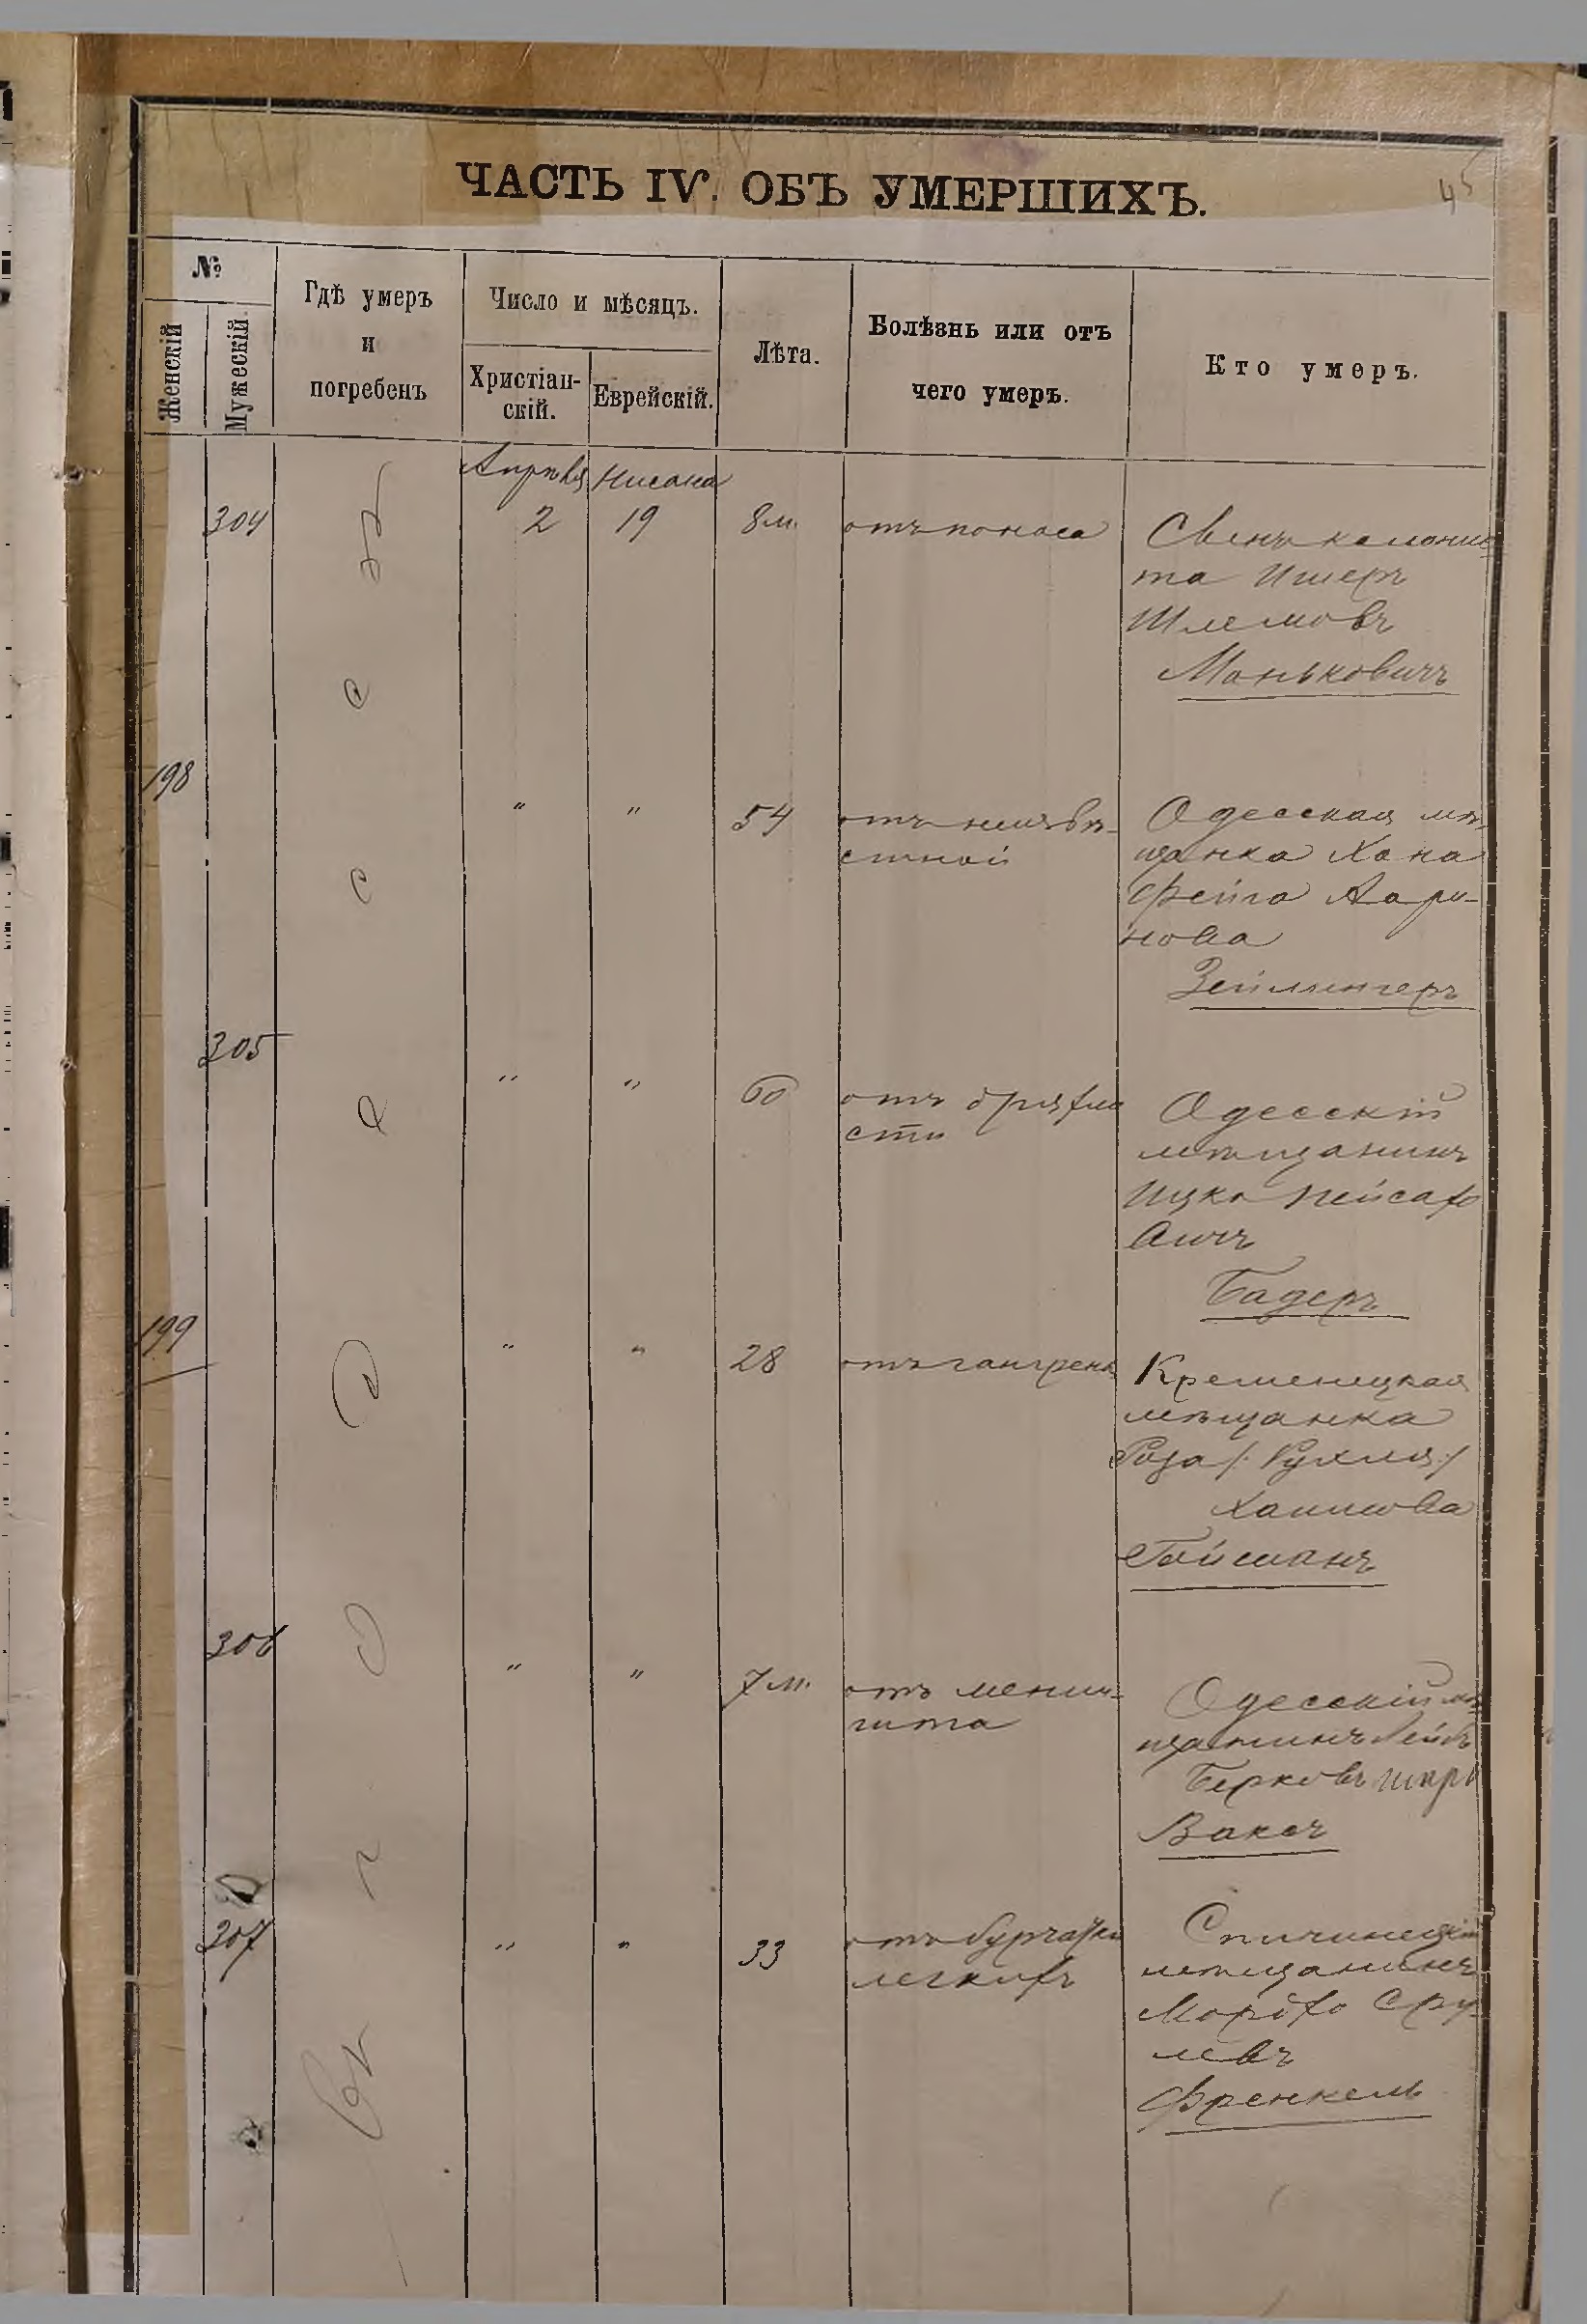 45
ЧАСТЬ IV. ОБЪ УМЕРШИХЪ.
№
Женскій
Мужескій
Гдѣ умеръ
и
погребенъ
Число и мѣсяцъ.
Христіан-
скій.
Еврейскій.
Лѣта.
Болѣзнь или отъ
чего умеръ.
Кто умеръ.
въ Одессѣ
Апрѣля Нисана
304 2 19 8 м. отъ поноса
Сынъ колонис
та
Шлемовъ
Маньковичъ
198 " " 54 отъ неизвѣ-
стной
Одесская мѣ-
щанка Хана
Фейга Ааро-
нова
Зейлингеръ
305 " " 60 отъ дряхло
сти
Одесскій
мѣщанинъ
Ицко Пейсахо
вичъ
Бадеръ
199 " " 28 отъ гангрены
Кременецкая
мѣщанка
Роза /: Рухля :/
Хаимова
Гойсманъ
306 " " 7 м. отъ менин-
гита
Одесскій мѣ-
щанинъ Лейбъ
Берковъ
Ваксъ
307 " " 33 отъ бугорчатки
легкихъ
Спичинецкій
мѣщанинъ
Мордхо Сру-
левъ
Френкель